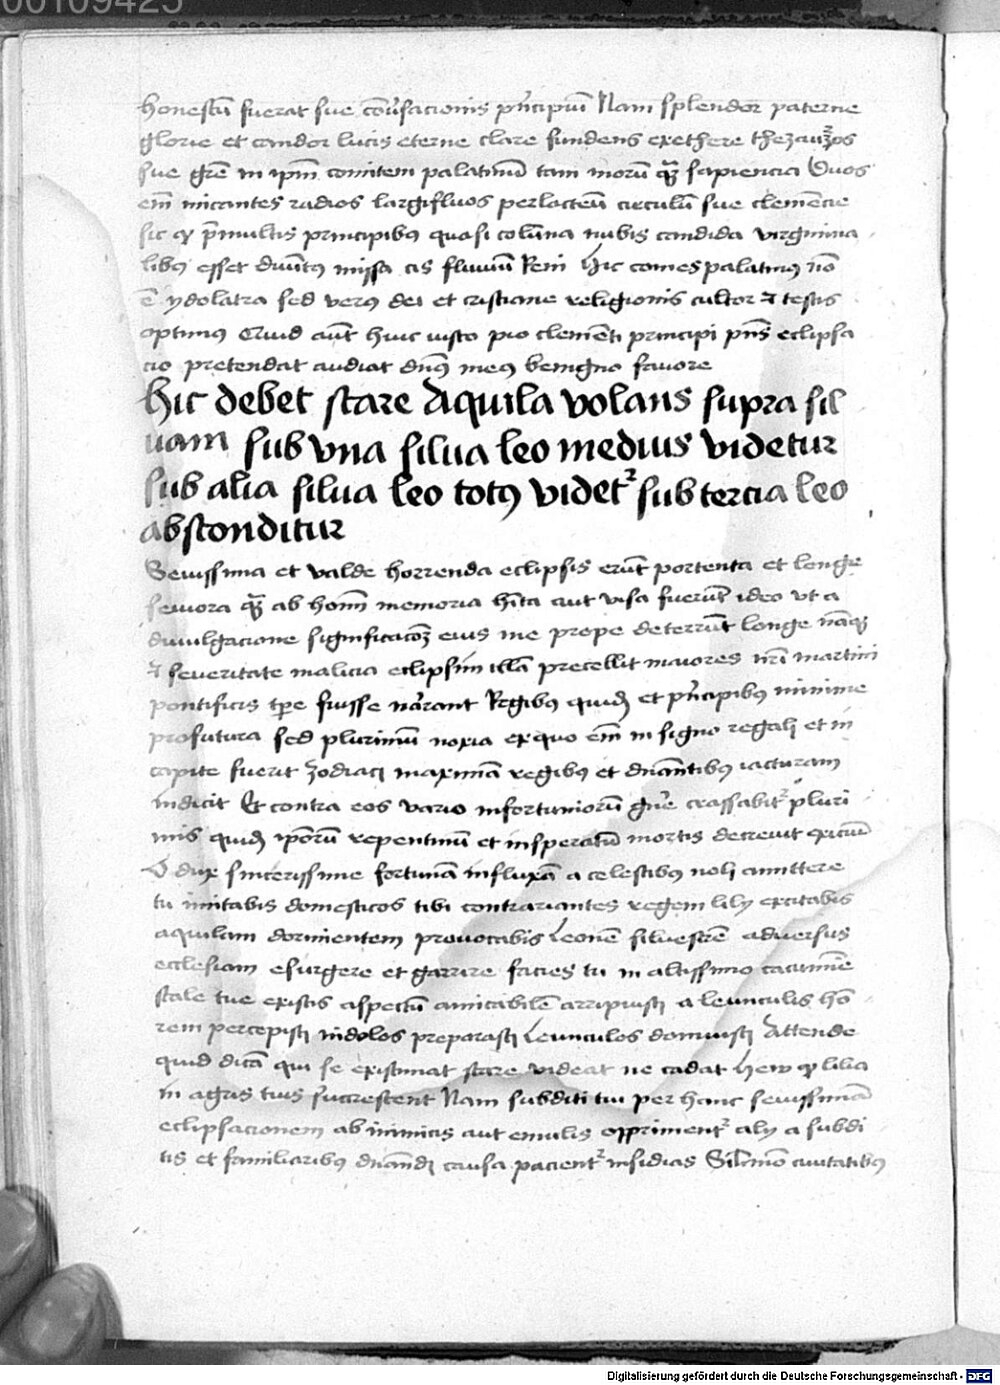 00109425
honestū fuerat sue cōūsacionis pn̄cipiū Nam splendor paterne
glorie et candor lucis eterne clare fundens exethere thezauros
sue grē in ipm̄ comitem palatinū tam morū qꝫ sapiencia Quos
em̄ micantes radios largifluos perlacteū circulū sue clemēcie
sic qꝫ p̄multis principibꝰ quasi colūna nubis candida virginea
libꝰ esset diuītꝰ missa cis fluuiū Reni Hic comes palatinꝰ nō
ē ydolatra sed verꝰ dei et cristiane religionis cultor ⁊ testis
optimus Quid aūt huic iusto pio clemēti principi pn̄s eclipsa
cio pretendat audiat dn̄s meꝰ benigno fauore
Hic debet stare Aquila volans supra sil
uam sub vna silua leo medius videtur
sub alia silua leo totꝰ videt᷑ sub tercia leo
absconditur
Seuissima et valde horrenda eclipsis erūt portenta et longe
seuiora qꝫ ab homī memoria hīta aut visa fuerūt ideo vt a
diuulgacione significacōꝫ eius me prope deterrūt longe nāqꝫ
⁊ seueritate malicia eclipsim illā precellit maiores nr̄i martini
pontificis tp̄e fuisse narrant Regibꝰ quidē et pn̄cipibꝰ minime
profutura sed plurimū noxia exquo em̄ in signo regali et in
capite fuerit zodiaci maximā regibꝰ et dn̄antibꝰ iacturam
indicit Et contra eos vario infortuniorū gn̄e crassabit᷑ pluri
mis quidē ipōrū repentinū et insperatū mortis decreuit exiciū
O dux sincerissime fortunā influxā a celestibꝰ noli amittere
tu imitabis domesticos tibi contrariantes regem lily excitabis
aquilam dormientem prouocabis Leonē siluestrē aduersus
ecclesiam esurgere et garrire facies tu in altissimo cacumīe
scale tue existis aspectū amicabilē arripuisti a leunculis ho
rem percepisti indolos preparasti Leunculos domuisti Attende
quid dicā qui se existimat stare videat ne cadat Hew qꝫ lilia
in agris tuis sucrescent Nam subditi tui per hanc seuissimā
eclipsacionem ab inimicis aut emulis oppriment᷑ aly a subdi
tis et familiaribꝰ dn̄andi causa pacient᷑ insidias Silīmō ciuitatibꝰ
Digitalisierung gefördert durch die Deutsche Forschungsgemeinschaft - DFG